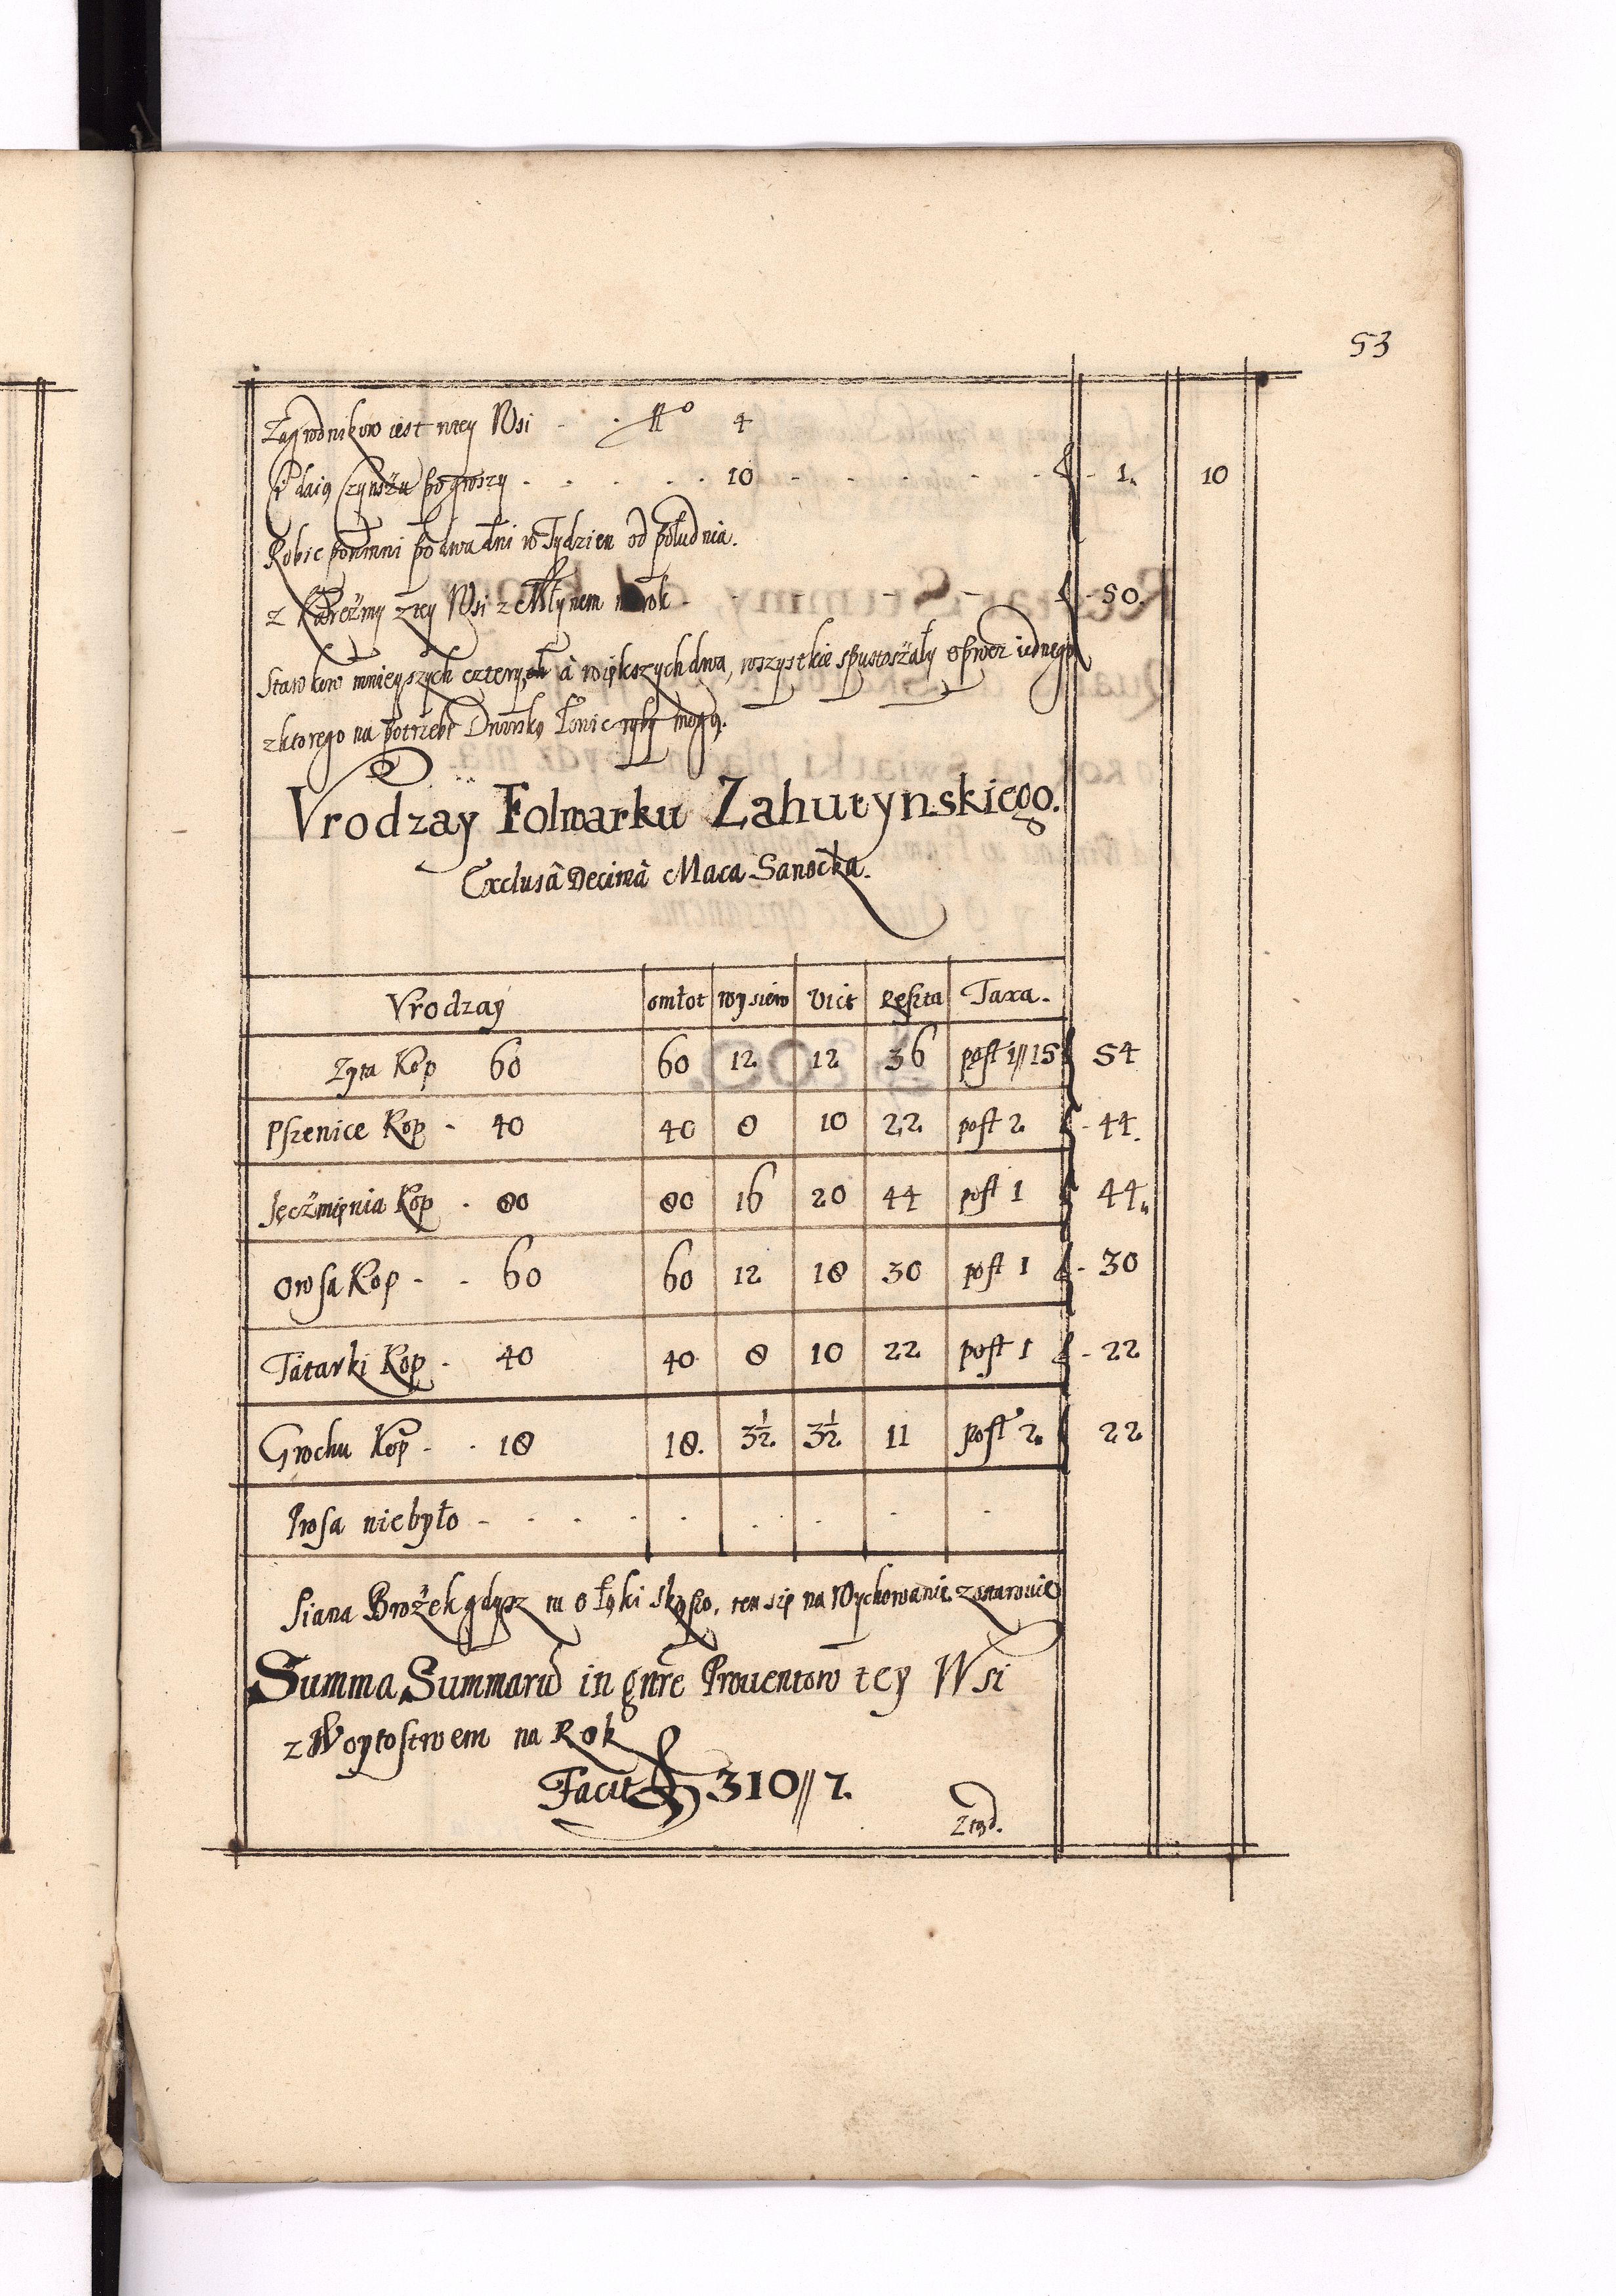 53
Zagrodnikow iest wtey Wsi - · No 4
Ci daią Czynszu po groszy . . . . . 10 - . . . . 1. 10
Robic powinni po dwa dni w Tydzien od południa.
z Karczmy ztey Wsi z Młynem na rok - - - - - 50.
Stawkow mnieyszych czterych à większych dwa, wszystkie spustoszały oprocz iednego
zktorego na potrzebę Dworską Łowic ryby mogą.
Vrodzaÿ Folwarku Zahutynskiego.
Exclusâ Decimâ Maca Sanocka.
Vrodzaÿ omłot wysiew Vict Reszta Taxa.
Zyta Kop 60 60 12 12 36 post 1//15 54
Pszenice Kop - 40 40 8 10 22 post 2 - 44.
Jęczmięnia Kop - 80 80 16 20 44 post 1 44
Owsa Kop - - 60 60 12 18 30 post 1 - 30
Tatarki Kop - 40 40 8 10 22 post 1 - 22
Grochu Kop - - 18 18. 3½ 3½ 11 post 2. 22
Prosa niebyło - . . . . . . . .
Siana Brożek gdysz tu o Łąki skąpo, ten się na Wychowanie zostawuie
Summa Summarũ in gnre Prouentow tey Wsi
z Woytostwem na Rok
Facit 310//7.